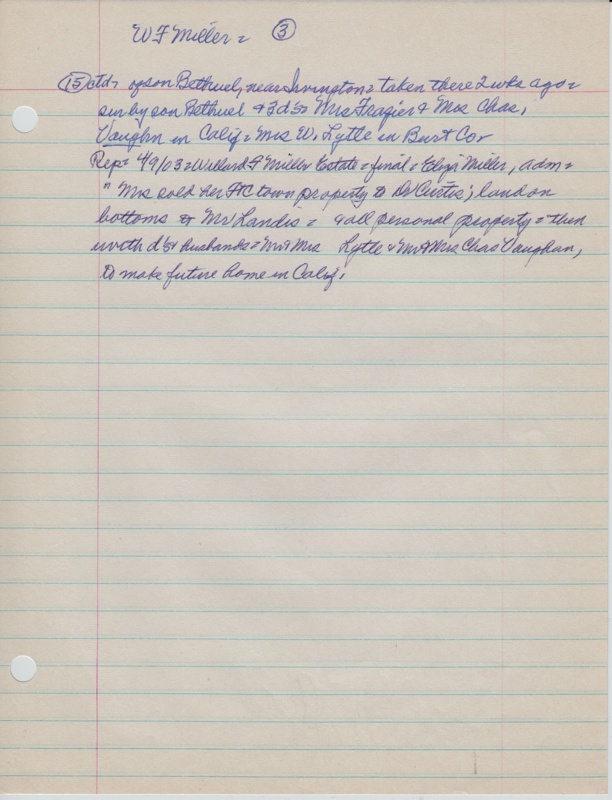 W F Miller = ③
⑮ ctd, of son Bethuel, near Irvington = taken there 2 wks ago =
sur by son Bethuel & 3 d's = Mrs Frazier & Mrs Chas,
Vaughn in Calif = Mrs W. Lytle in Burt Co =
Rep = 4/9/03 = Willard F Miller Estate = final = Eliza Miller, adm =
" Mrs sold her FtC town property to Dr Curtis; land on
bottoms to Mr Landis = & all personal property = then
with d's & husbands = Mr & Mrs Lytle & Mr & Mrs Chas Vaughan,
to make future home in Calif,